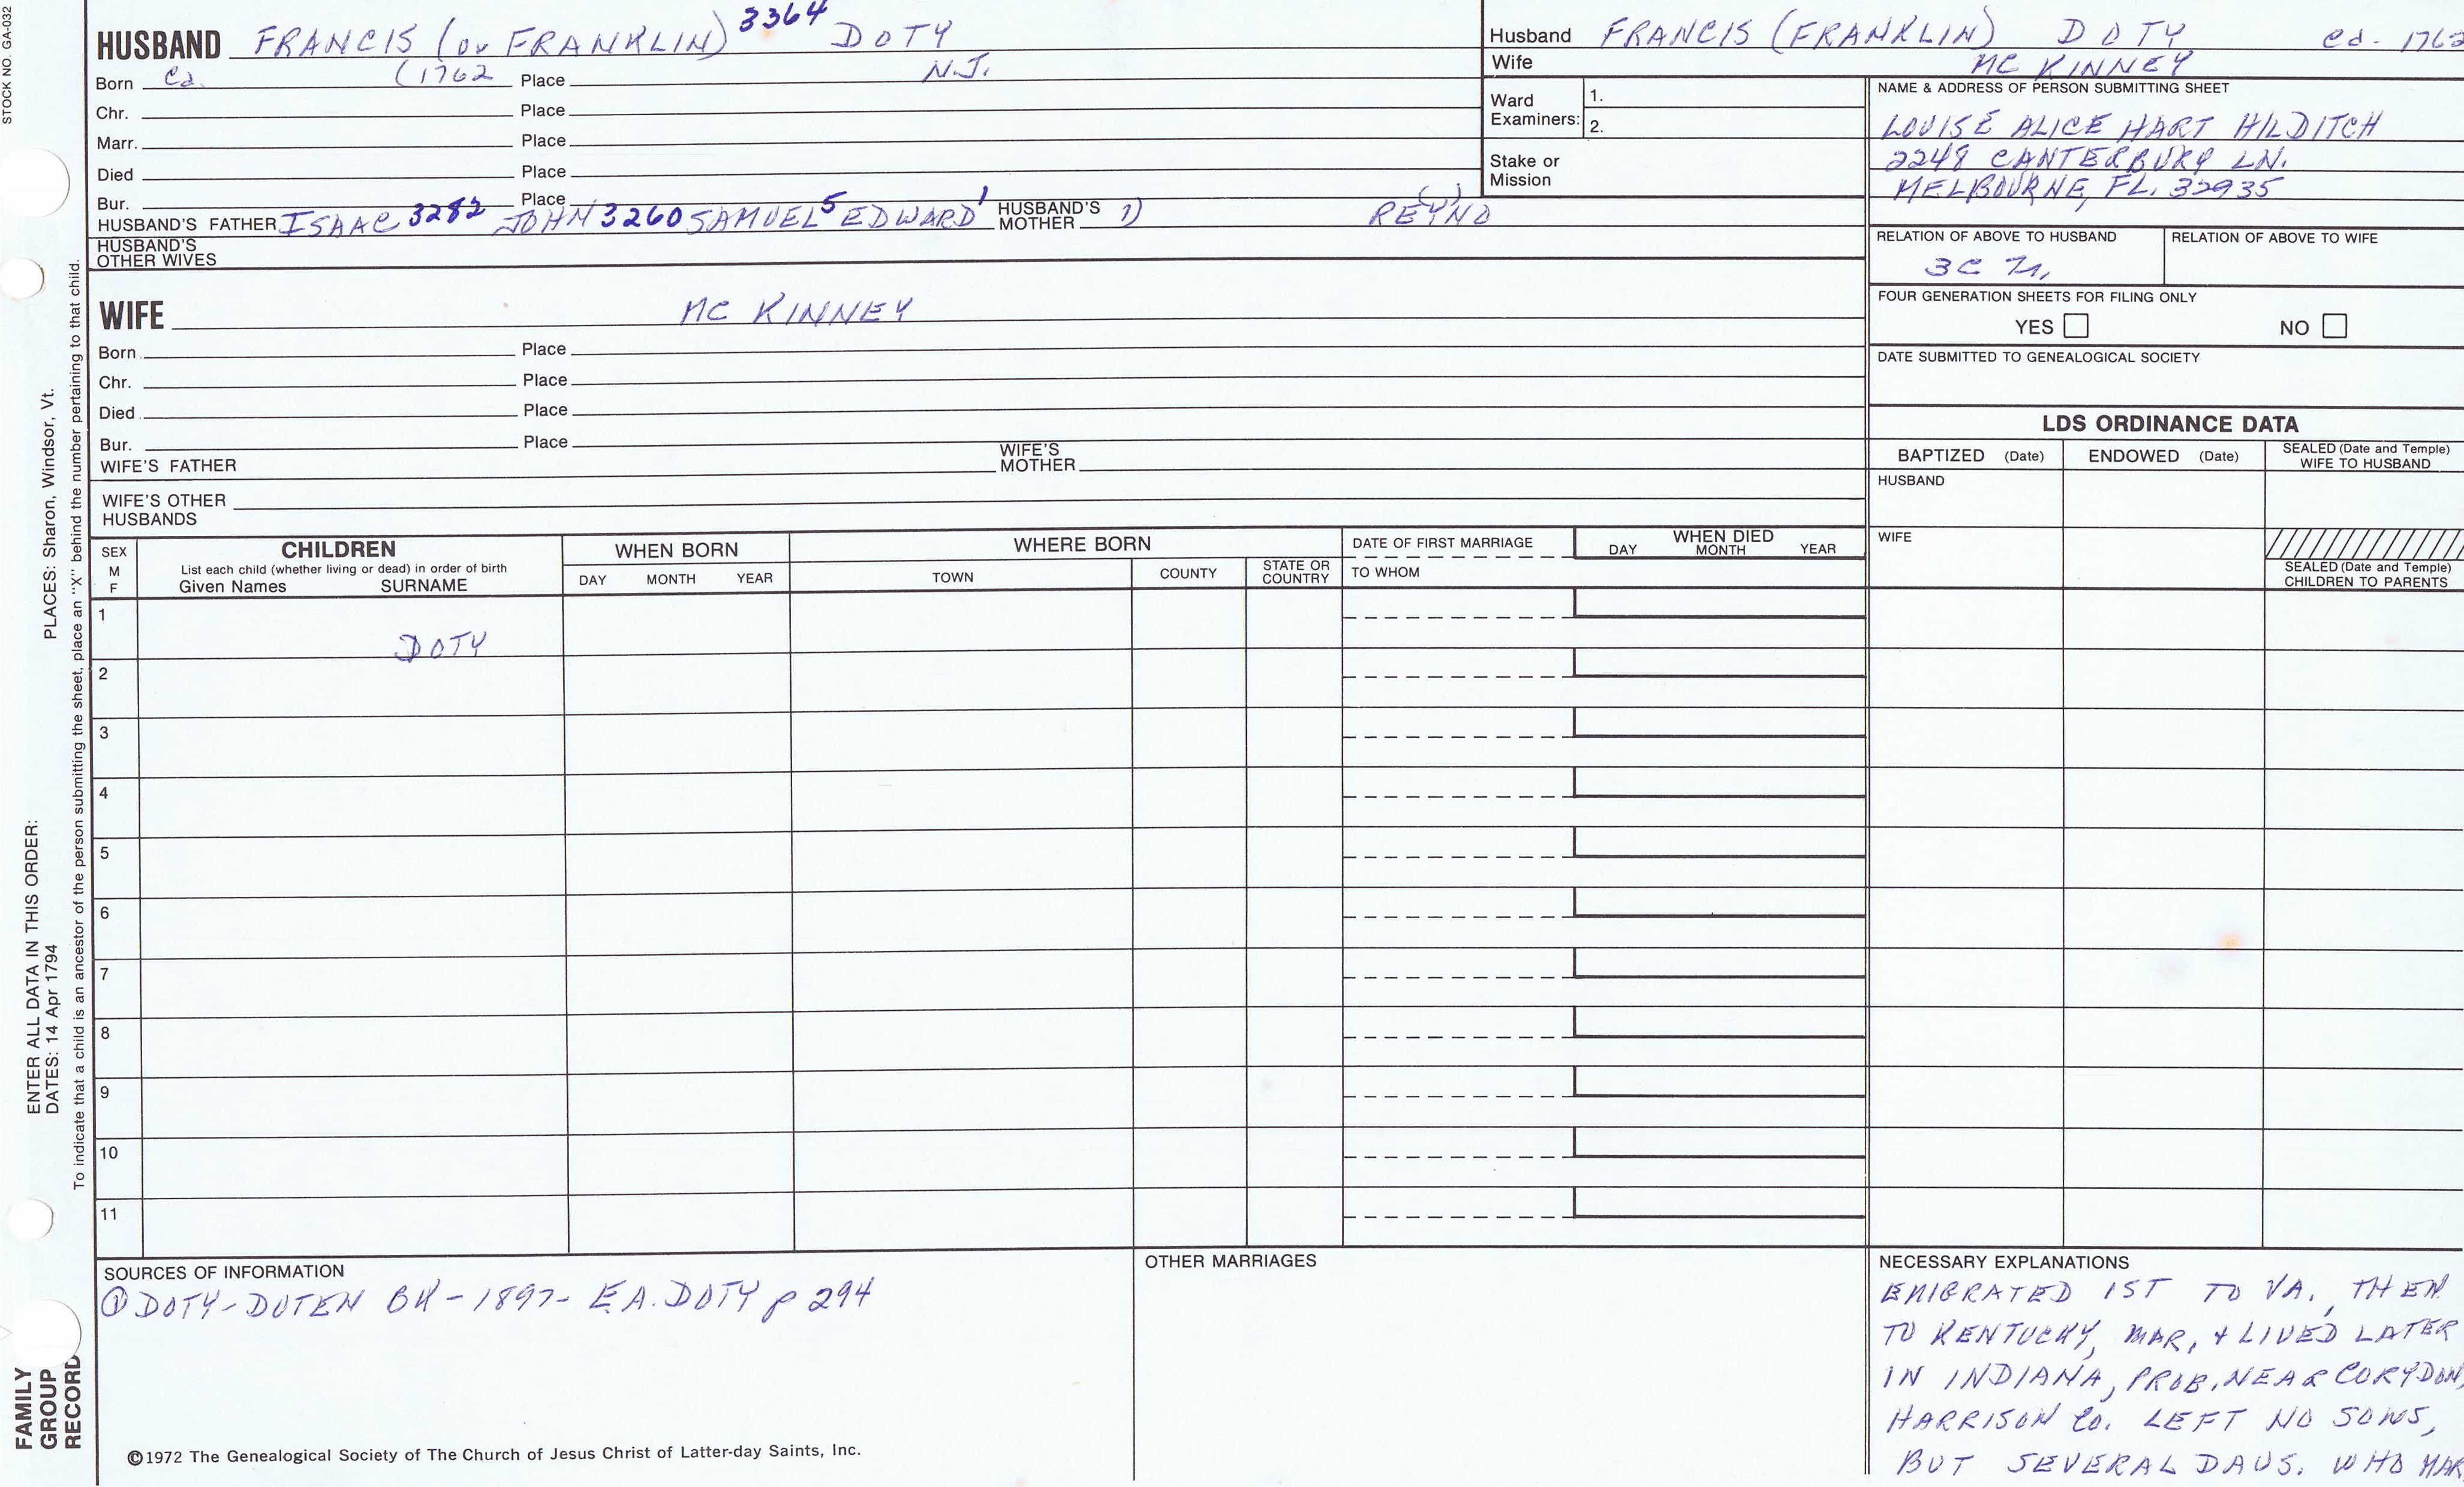 STOCK NO. GA-032
HUSBAND FRANCIS (or FRANKLIN) 3364 DOTY
Born Ca. (1762 Place N.J.
Chr. Place
Marr. Place
Died Place
Bur. Place
HUSBAND'S FATHER ISAAC 3282 JOHN 3260 SAMUEL 5 EDWARD 1 HUSBAND'S MOTHER 1)
HUSBAND'S OTHER WIVES
WIFE MC KINNEY
Born Place
Chr. Place
Died Place
Bur. Place
WIFE'S FATHER WIFE'S MOTHER
WIFE'S OTHER HUSBANDS
Husband FRANCIS (FRANKLIN) DOTY ca. 1762
Wife MC KINNEY
Ward Examiners: 1.
2.
Stake or Mission
NAME & ADDRESS OF PERSON SUBMITTING SHEET
LOUISE ALICE HART HILDITCH
2248 CANTERBURY LN.
MELBOURNE, FL. 32935
RELATION OF ABOVE TO HUSBAND RELATION OF ABOVE TO WIFE
FOUR GENERATION SHEETS FOR FILING ONLY
YES NO
DATE SUBMITTED TO GENEALOGICAL SOCIETY
LDS ORDINANCE DATA
BAPTIZED (Date) ENDOWED (Date) SEALED (Date and Temple) WIFE TO HUSBAND
HUSBAND
WIFE
SEALED (Date and Temple) CHILDREN TO PARENTS
SEX M F
CHILDREN
List each child (whether living or dead) in order of birth
Given Names SURNAME
WHEN BORN
DAY MONTH YEAR
WHERE BORN
TOWN COUNTY STATE OR COUNTRY
DATE OF FIRST MARRIAGE
TO WHOM
WHEN DIED
DAY MONTH YEAR
1 DOTY
2
3
4
5
6
7
8
9
10
11
SOURCES OF INFORMATION
① DOTY-DOTEN BK-1897- E.A. DOTY p 294
OTHER MARRIAGES
NECESSARY EXPLANATIONS
EMIGRATED 1ST TO VA., THEN
TO KENTUCKY, MAR, + LIVED LATER
IN INDIANA, PROB. NEAR CORYDON,
HARRISON Co. LEFT NO SONS,
BUT SEVERAL DAUS. WHO MAR
©1972 The Genealogical Society of The Church of Jesus Christ of Latter-day Saints, Inc.
ENTER ALL DATA IN THIS ORDER:
DATES: 14 Apr 1794 PLACES: Sharon, Windsor, Vt.
To indicate that a child is an ancestor of the person submitting the sheet, place an "X" behind the number pertaining to that child.
FAMILY
GROUP
RECORD